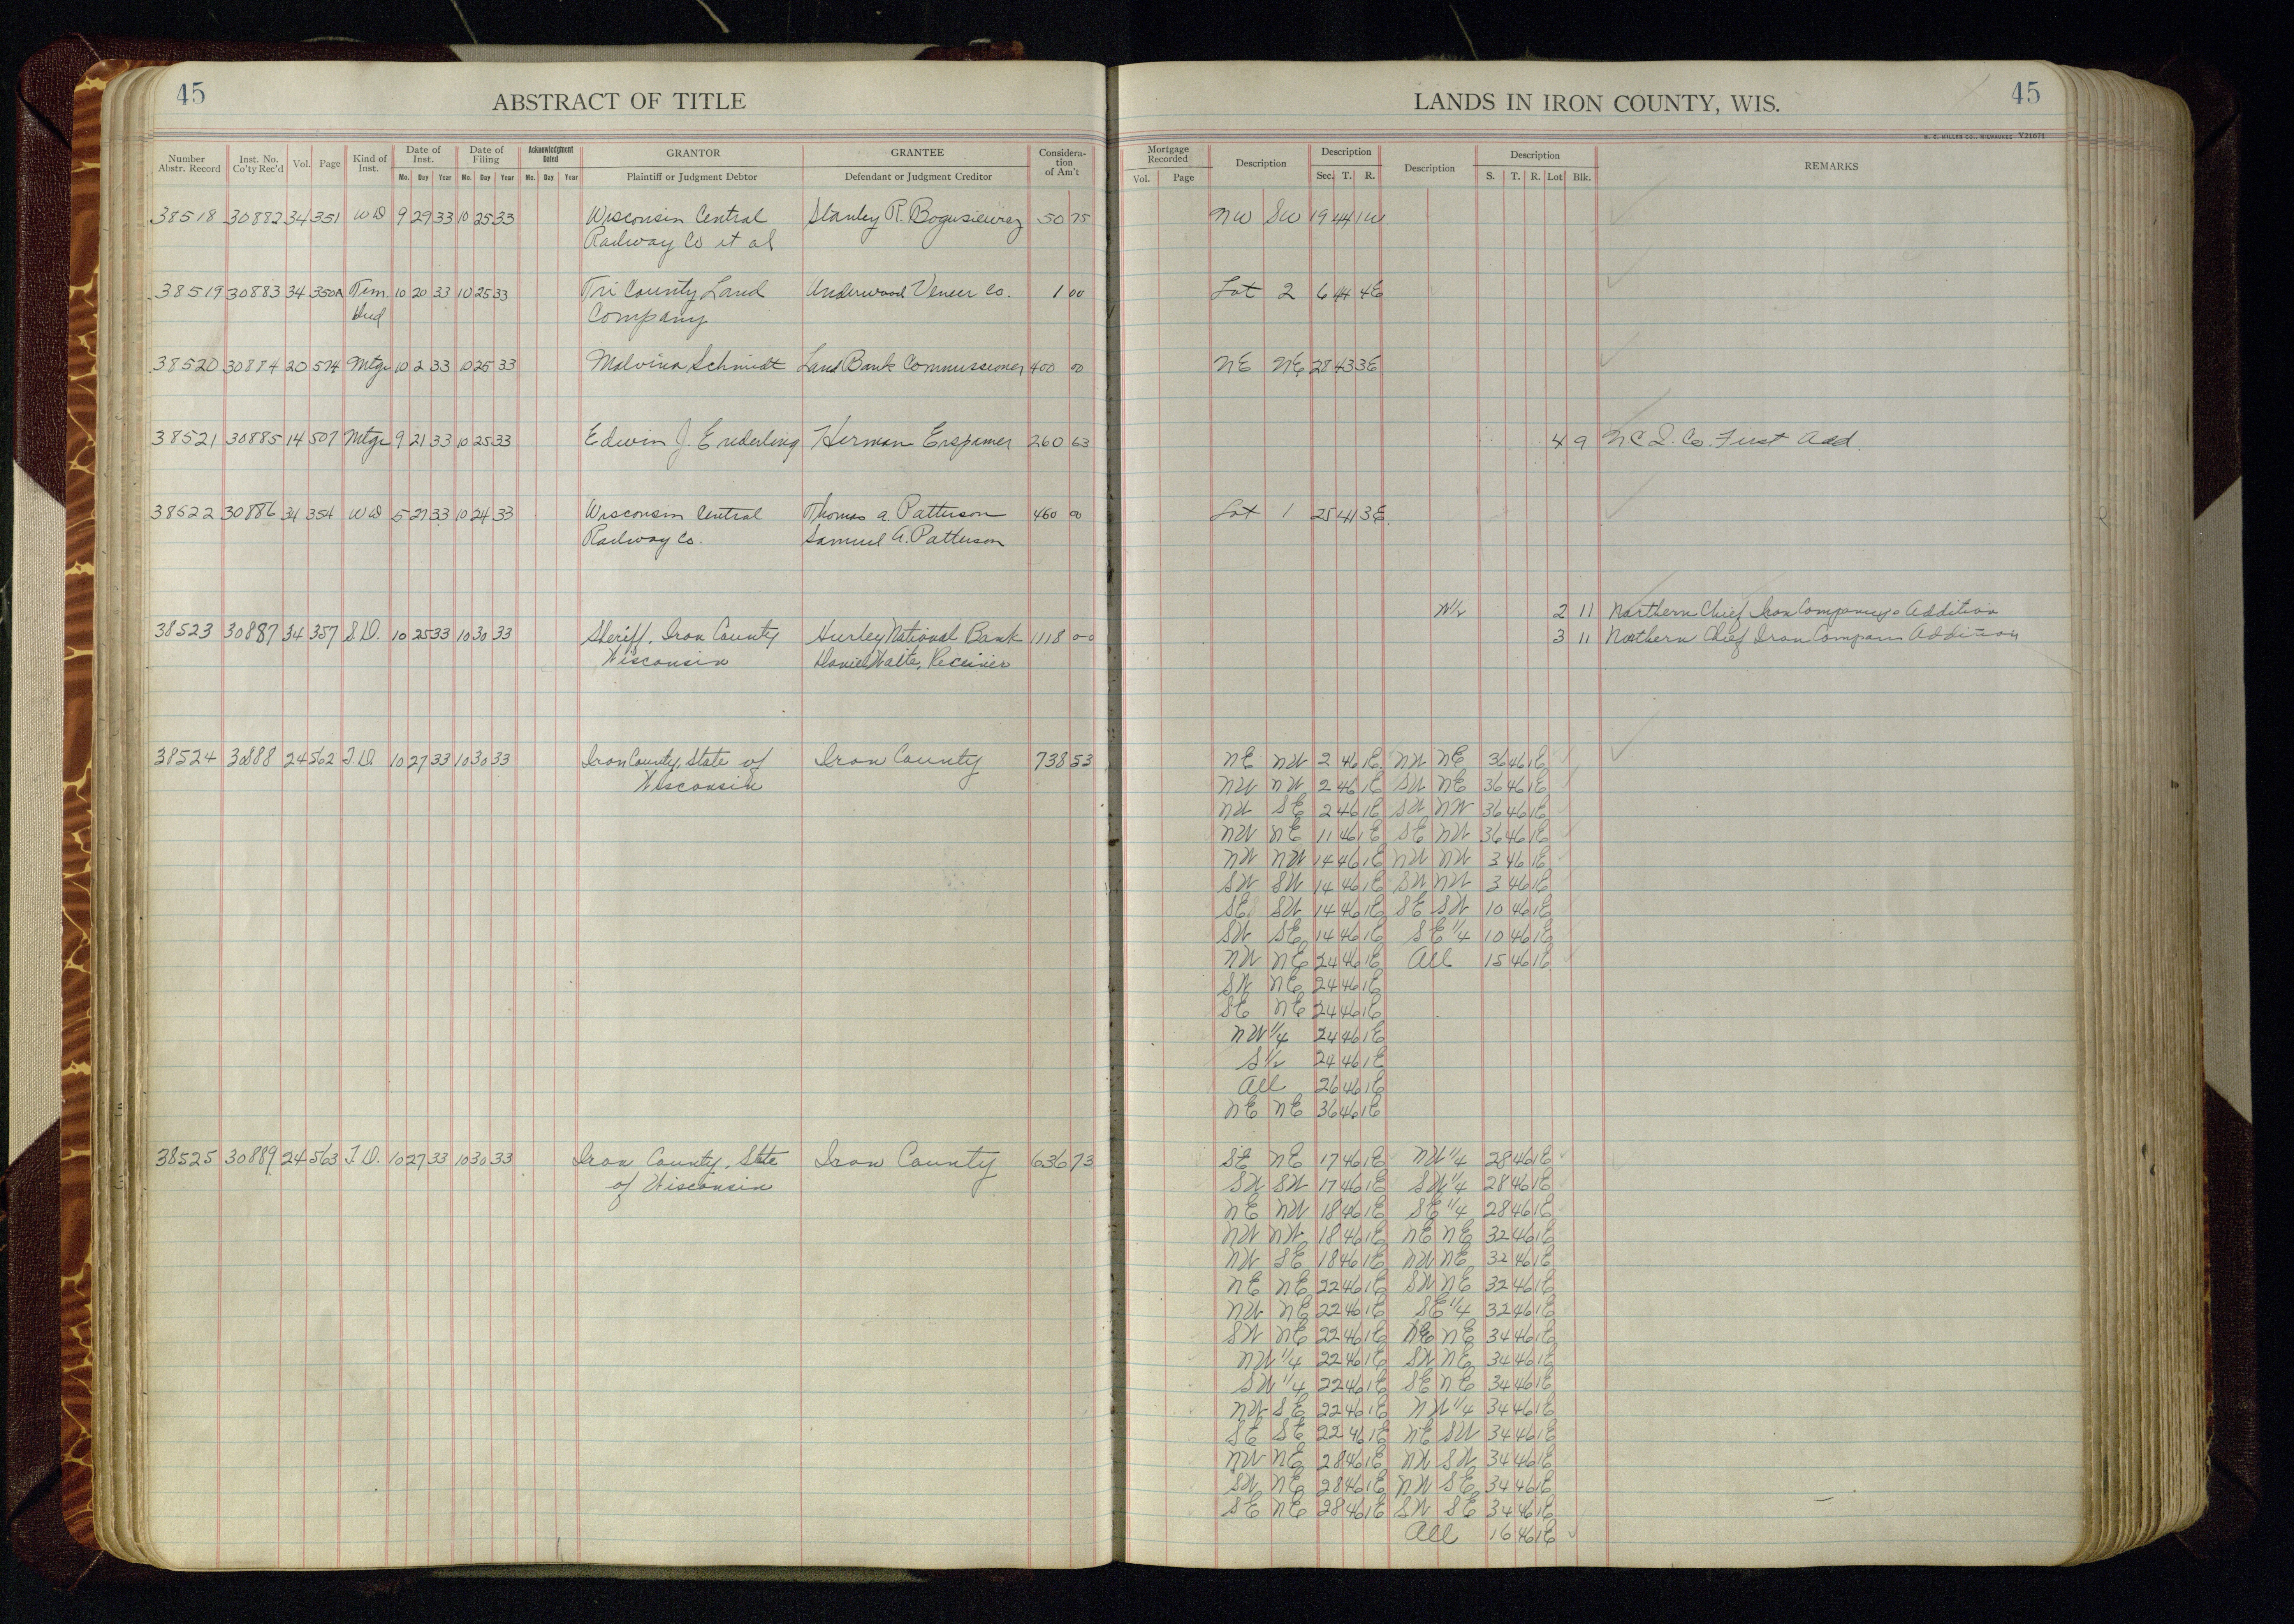 45
ABSTRACT OF TITLE
LANDS IN IRON COUNTY, WIS.
45
H. C. MILLER CO., MILWAUKEE V21671
Number Abstr. Record Inst. No. Co'ty Rec'd Vol. Page Kind of Inst. Date of Inst. Mo. Day Year Date of Filing Mo. Day Year Acknowledgment Dated Mo. Day Year GRANTOR Plaintiff or Judgment Debtor GRANTEE Defendant or Judgment Creditor Consideration of Am't
Mortgage Recorded Vol. Page Description Description Sec. T. R. Description Description S. T. R. Lot Blk. REMARKS
38518 30882 34 351 WD 9 29 33 10 25 33 Wisconsin Central Stanley R. Bogusiewicz 50 75 NW SW 19 44 1W
Railway Co et al
38519 30883 34 350A Tim. 10 20 33 10 25 33 Tri County Land Underwood Veneer Co. 1 00 Lot 2 6 44 4E
Deed Company
38520 30884 20 574 Mtge 10 2 33 10 25 33 Malvina Schmidt Land Bank Commissioner 400 00 NE NE 28 43 3E
38521 30885 14 507 Mtge 9 21 33 10 25 33 Edwin J. Enderling Herman Erspamer 260 63 4 9 N C I. Co. First Add.
38522 30886 34 354 WD 5 27 33 10 24 33 Wisconsin Central Thomas A. Patterson 460 00 Lot 1 25 41 3E
Railway Co. Samuel A. Patterson
N½ 2 11 Northern Chief Iron Companys Addition
38523 30887 34 357 S.D. 10 25 33 10 30 33 Sheriff, Iron County Hurley National Bank 1118 00 3 11 Northern Chief Iron Company Addition
Wisconsin Daniel Waite, Receiver
38524 30888 24 562 T.D. 10 27 33 10 30 33 Iron County, State of Iron County 738 53 NE NW 2 46 1E NW NE 36 46 1E
Wisconsin NW NW 2 46 1E SW NE 36 46 1E
NW SE 2 46 1E SW NW 36 46 1E
NW NE 11 46 1E SE NW 36 46 1E
NW NW 14 46 1E NW NW 3 46 1E
SW SW 14 46 1E SW NW 3 46 1E
SE SW 14 46 1E SE SW 10 46 1E
SW SE 14 46 1E SE 1/4 10 46 1E
NW NE 24 46 1E All 15 46 1E
SW NE 24 46 1E
SE NE 24 46 1E
NW 1/4 24 46 1E
S½ 24 46 1E
All 26 46 1E
NE NE 36 46 1E
38525 30889 24 563 T.D. 10 27 33 10 30 33 Iron County, State Iron County 636 73 SE NE 17 46 1E NW 1/4 28 46 1E
of Wisconsin SW SW 17 46 1E SW 1/4 28 46 1E
NE NW 18 46 1E SE 1/4 28 46 1E
NW NW 18 46 1E NE NE 32 46 1E
NW SE 18 46 1E NW NE 32 46 1E
NE NE 22 46 1E SW NE 32 46 1E
NW NE 22 46 1E SE 1/4 32 46 1E
SW NE 22 46 1E NE NE 34 46 1E
NW 1/4 22 46 1E SW NE 34 46 1E
SW 1/4 22 46 1E SE NE 34 46 1E
NW SE 22 46 1E NW 1/4 34 46 1E
SE SE 22 46 1E NE SW 34 46 1E
NW NE 28 46 1E NW SW 34 46 1E
SW NE 28 46 1E NW SE 34 46 1E
SE NE 28 46 1E SW SE 34 46 1E
All 16 46 1E